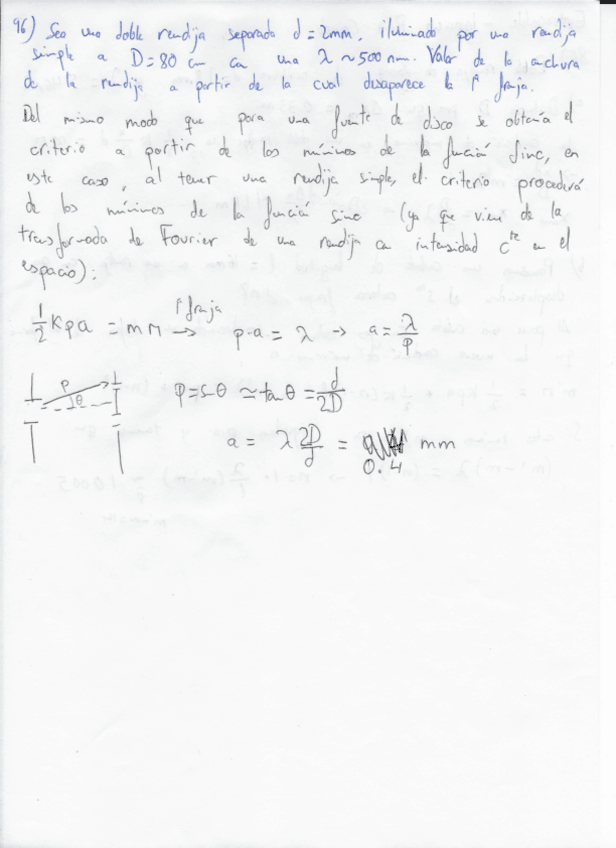 96) Sea una doble rendija separada d = 2mm, iluminado por una rendija
simple a D = 80 cm con una λ ~ 500 nm. Valor de la anchura
de la rendija a partir de la cual desaparece la 1ª franja.
Del mismo modo que para una fuente de disco se obtenía el
criterio a partir de los mínimos de la función Jinc, en
este caso, al tener una rendija simple, el criterio procederá
de los mínimos de la función sinc (ya que viene de la
transformada de Fourier de una rendija con intensidad cte en el
espacio):
1/2 Kpa = mπ → 1ª franja p·a = λ → a = λ/p
p θ p = sinθ ≃ tanθ = d/2D
a = λ 2D/d = 0.4 mm